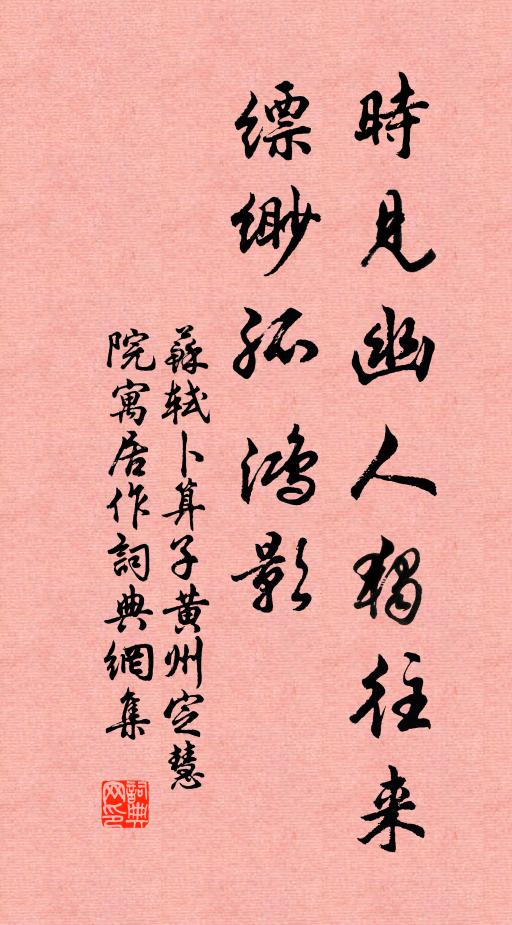 時見幽人獨往来
縹緲孤鴻影
蘇軾卜算子黄州定慧
院寓居作詞典網集
詞典
网印